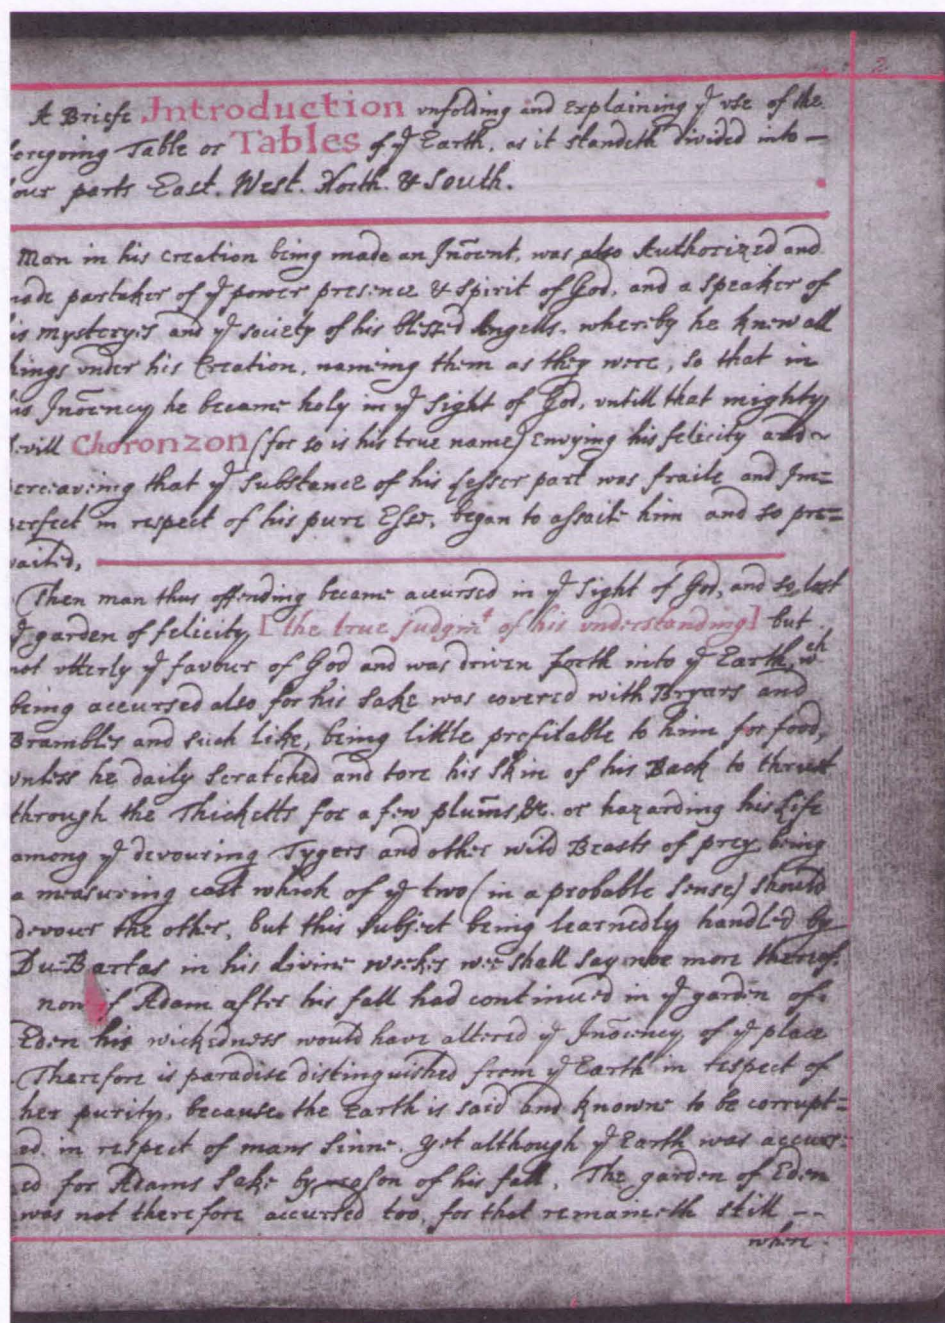 2
A Briefe Introduction vnfolding and Explaining yᵉ vse of the
foregoing Table or Tables of yᵉ Earth, as it standeth divided into —
four parts East. West. North. & South.
Man in his Creation being made an Iñocent, was also Authorized and
made partaker of yᵉ power presence & spirit of God, and a speaker of
his mysteryes and yᵉ society of his blessed Angells, whereby he knew all
things vnder his Creation, nameing them as they were, so that in
his Iñocency he became holy in yᵉ Sight of God, vntill that mighty
Devill Choronzon (for so is his true name) Envying his felicity and
perceaveing that yᵉ Substance of his Lesser part was fraile and Im=
perfect in respect of his pure Esse, began to assaile him and so pre=
vailed,
Then man thus offending became accursed in yᵉ Sight of God, and so lost
yᵉ garden of felicity [the true judgmᵗ of his vnderstanding] but
not vtterly yᵉ favour of God and was driven forth into yᵉ Earth, wᶜʰ
being accursed also for his Sake was covered with Bryars and
Brambles and such like, being little profitable to him for food,
vnless he daily Scratched and tore his Skin of his Back to thrust
through the Thicketts for a few plum̃s &c. or hazarding his Life
among yᵉ devouring Tygers and other wild Beasts of prey, being
a measuring cast which of yᵉ two (in a probable Sense) should
devour the other, but this Subject being learnedly handled by
Du-Bartas in his divine weekes wee shall say noe more thereof.
now if Adam after his fall had continued in yᵉ garden of
Eden his wickedness would have altered yᵉ Iñocency of yᵉ place
Therefore is paradise distinguished from yᵉ Earth in respect of
her purity, because the Earth is said and knowne to be corrupt=
ed in respect of mans Sinne. yet although yᵉ Earth was accurs=
ed for Adams Sake by reason of his fall, The garden of Eden
was not therefore accursed too, for that remaineth still --
where